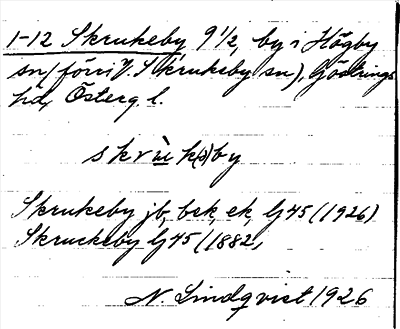 1-12 Skrukeby, 9 1/2, by i Högby
sn (förr i V. Skrukeby sn), Göstrings
hd, Österg. l.
skrù k(ə)by
Skrukeby jb, bek, ek, Lj 45 (1926)
Skruckeby Lj 45 (1882)
N. Lindqvist 1926